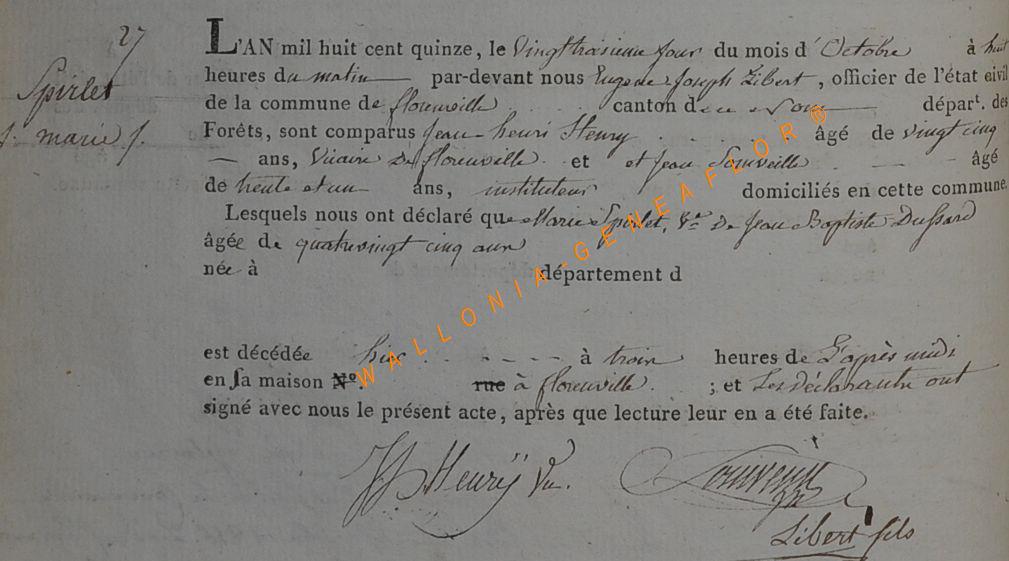 27
Spirlet
marie f.
L'AN mil huit cent quinze, le Vingttroisieme jour du mois d'Octobre à huit
heures du matin par-devant nous Eugene Joseph Libert, officier de l'état civil
de la commune de florenville canton d départ. des
Forêts, sont comparus Jean henri Henry âgé de vingt cinq
ans, Vicaire De florenville et et Jean Souveille âgé
de trente et un ans, instituteur domiciliés en cette commune.
Lesquels nous ont déclaré que Marie Spirlet, Ve De Jean Baptiste Dussard
âgée de quatrevingt cinq ans
née à département d
est décédée hier à trois heures de L'après midi
en sa maison No. rue à florenville. ; et Les déclarants ont
signé avec nous le présent acte, après que lecture leur en a été faite.
JH Henrÿ Vic.
Libert fils
WALLONIA-GENEAFLOR ®